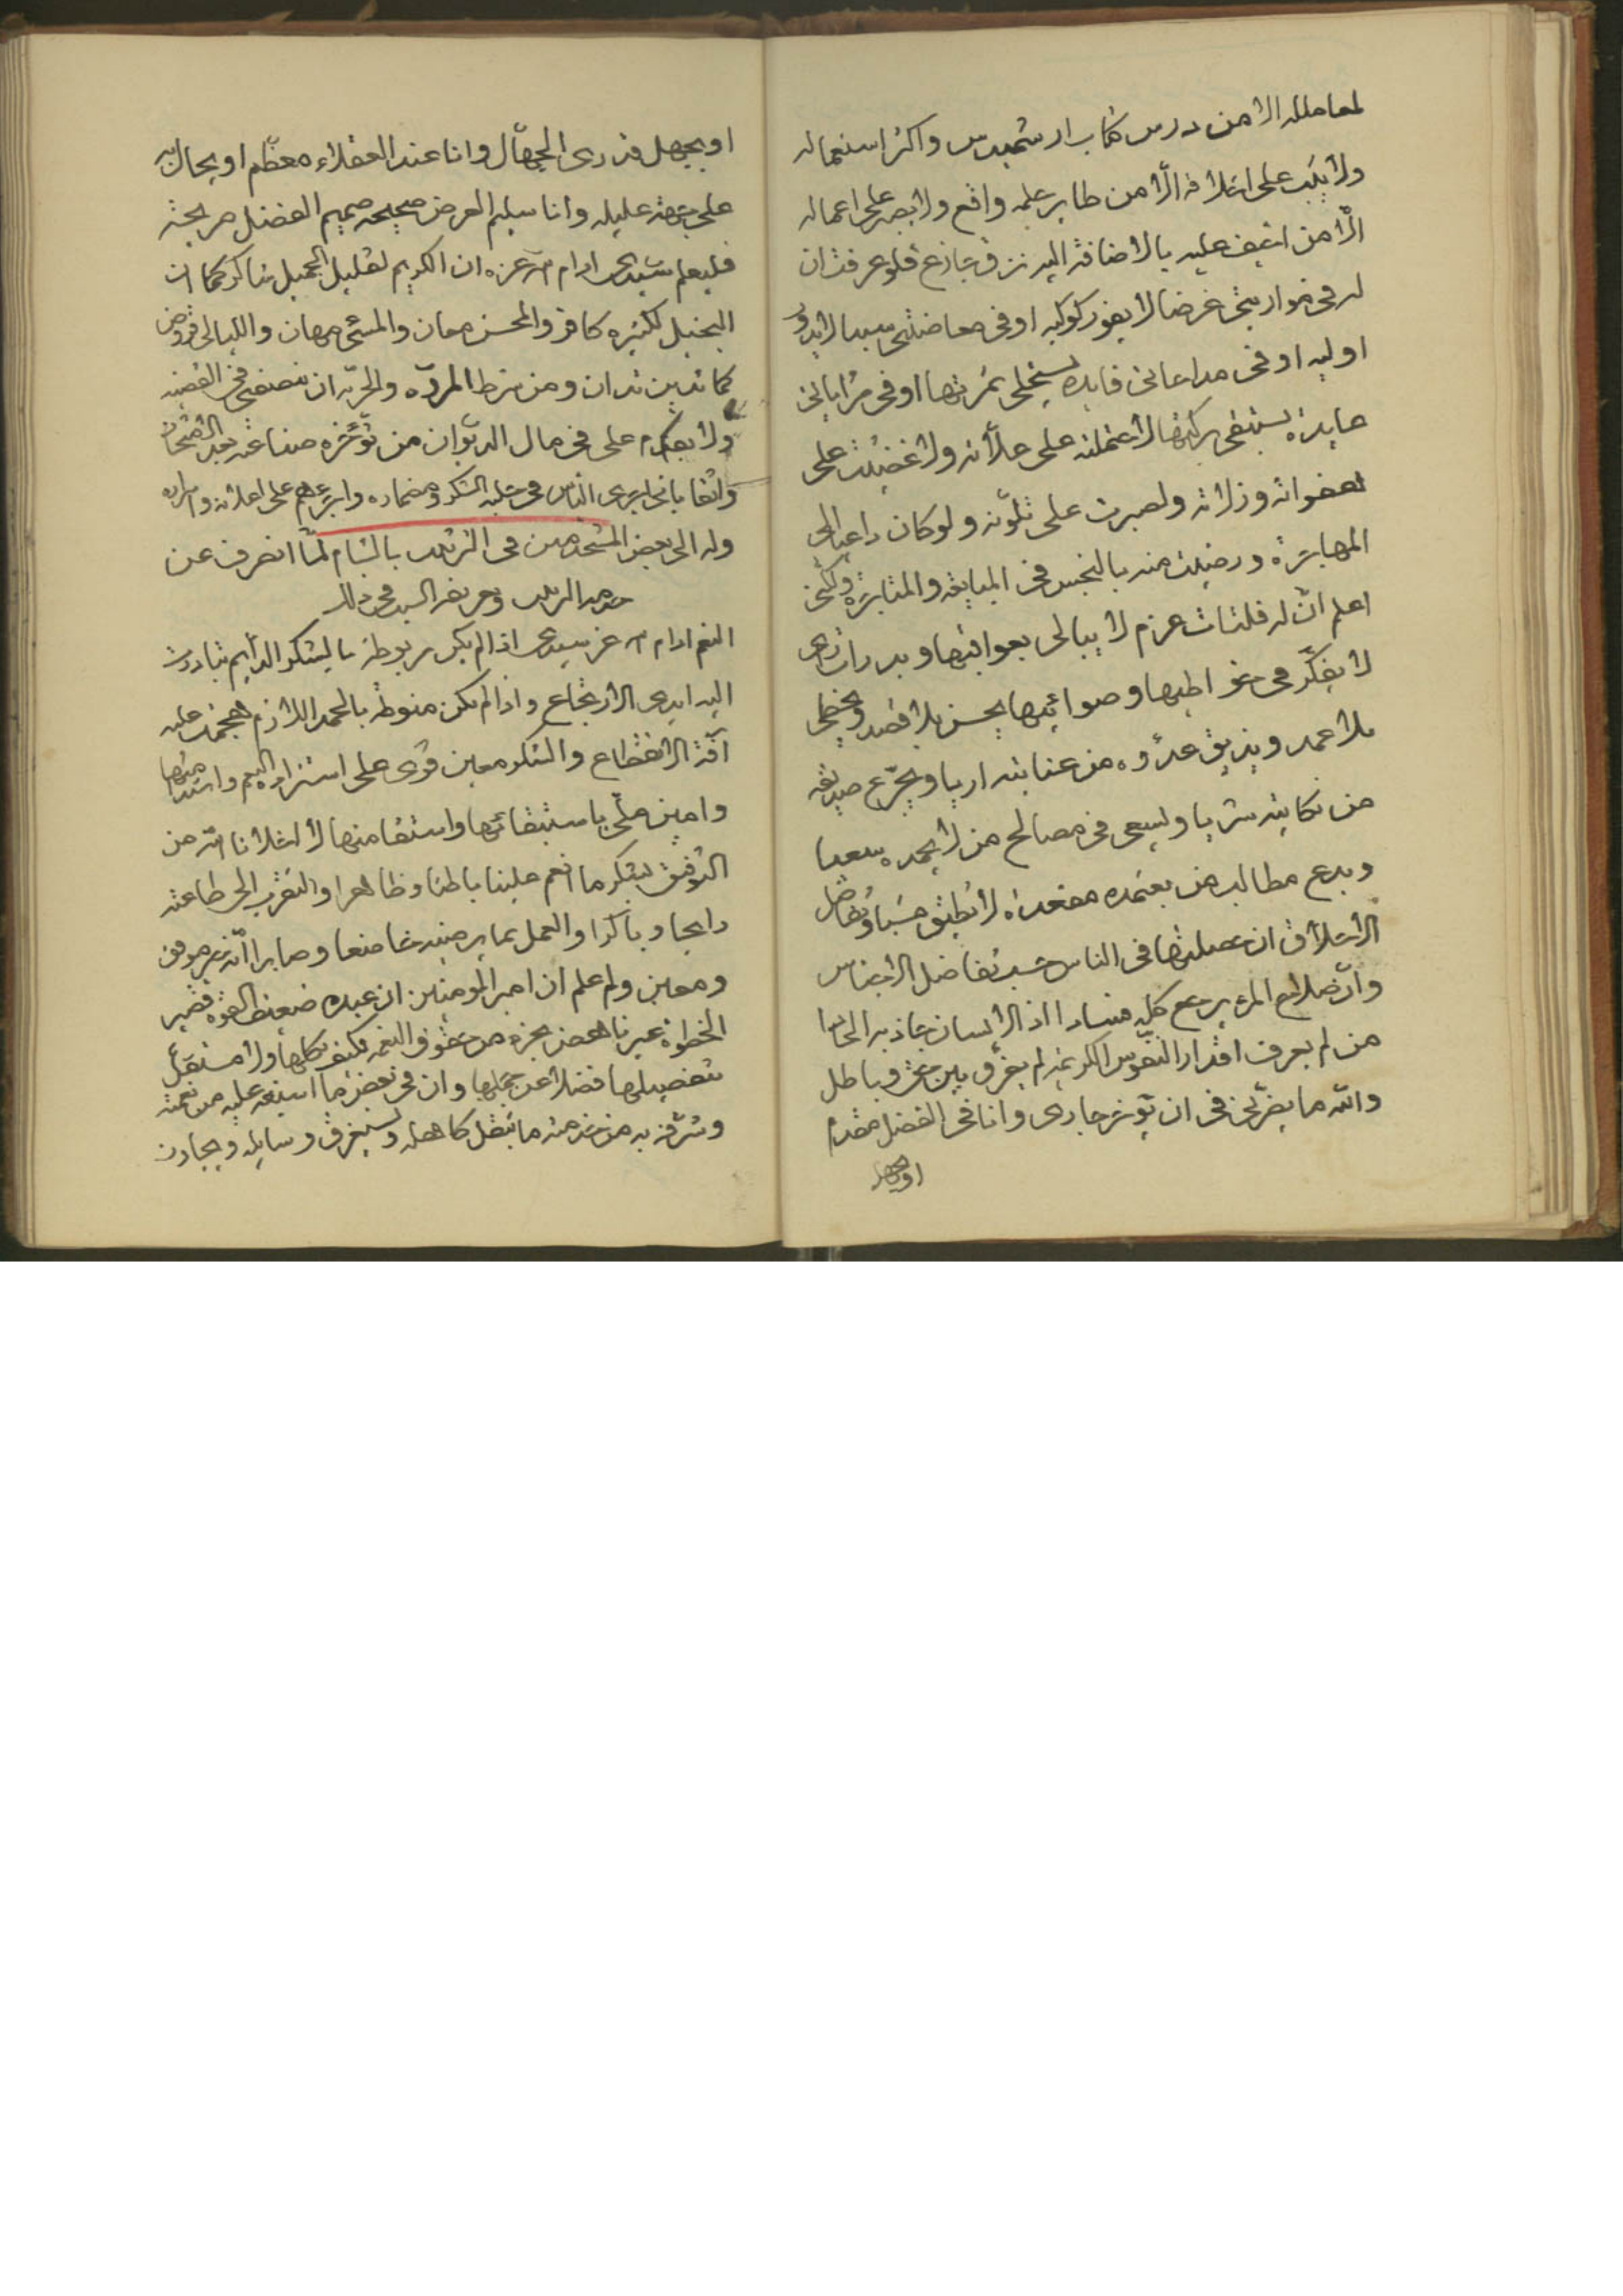 لمعاملته الا من درس كتاب ارشميدس واكثر استعماله
ولا يثبت على اخلاقه الّا من طاير علمه واقع ولا يصبر على اعماله
الّا من اضيف عليه بالاضافة اليه نزق جازع فلو عرفت ان
له في غرضا لا يفوز كوكبه او في سببا لا يدور
اوليه او في مداعاتي فايدة يستحلى ثمرتها او في
عايدة لاحتملته على علّاته ولاغضيت على
هفواته وزلاته ولصبرت على تلوّنه ولو كان داعيا الى
ورضيت منه بالبخس في المبايعة والمثابرة ولكني
اعلم انّ له فلتات عزم لا يبالي بعواقبها وبدرات راي
لا يفكّر في خواطيها وصوائبها يحسن بلا قصد ويخطي
بلا عمد ويذيق عدوّه من عنايته اريا ويجرّع صديقه
من نكايته شريا ويسعى في مصالح من لا يحمده سعيا
ويدع مطالب من يعتمده لا يطيق وتفاضل
الاخلاق ان حصلتها في الناس حسب تفاضل الاجناس
وانّ صلاح المرء يرجع كله فسادا اذا الانسان جاز به الحدّا
من لم يعرف اقدار النفوس الكريمة لم يفرّق بين حق وباطل
والله ما يضرّني في ان يؤخر جاري وانا في الفضل مقدم
او يجهل
او يجهل قدري الجهّال وانا عند العقلاء معظّم او يحال بي
على جهة عليلة وانا سليم العرض صحيحه صميم الفضل صريحه
فليعلم سيدي ادام الله عزه ان الكريم لقليل الجميل شاكر كما ان
البخيل لكثيره كافر والمحسن معان والمسي مهان والليالي قروض
كما تدين تدان ومن شرط المروّه والحرّية ان ينصفني في القضيه
ولا يقدم على في مال الديوان من تؤخره صناعته يوم الامتحان
واثقا باني اجري الناس في حلبة الشكر ومضماره وابرعهم على اعلانه واسراره
وله الى بعض المستخدمين في الترتيب بالشام لمّا انصرف عن
خدمة الترتيب وتعريفه السبب في ذلك
النعم ادام الله عز سيدي اذا لم يكن مربوطة بالشكر الدايم تبادرت
اليه ايدي الارتجاع واذا لم تكن منوطة بالحمد اللازم هجمت عليه
آفة الانقطاع والشكر معين قوى على استزادة النعم واستدامتها
وامين ملّي باستبقائها واستقامتها لا اخلانا الله من
التوفيق لشكر ما انعم علينا باطنا وظاهرا والتقرب الى طاعته
رايحا وباكرا والعمل بما يرضيه خاضعا وصابرا انه خير موفق
ومعين ولو علم ان امير المومنين ان عبده ضعيف القوة قصير
الخطوة غير ناهض بجزء من حقوق النعمة فكيف بكلها ولا مستقل
بتفصيلها فضلا عن جملها وان في بعض ما اسبغه عليه من نعمته
وشرّفه به من خدمته ما يثقل كاهله ويستغرق وسايله ويجاوز